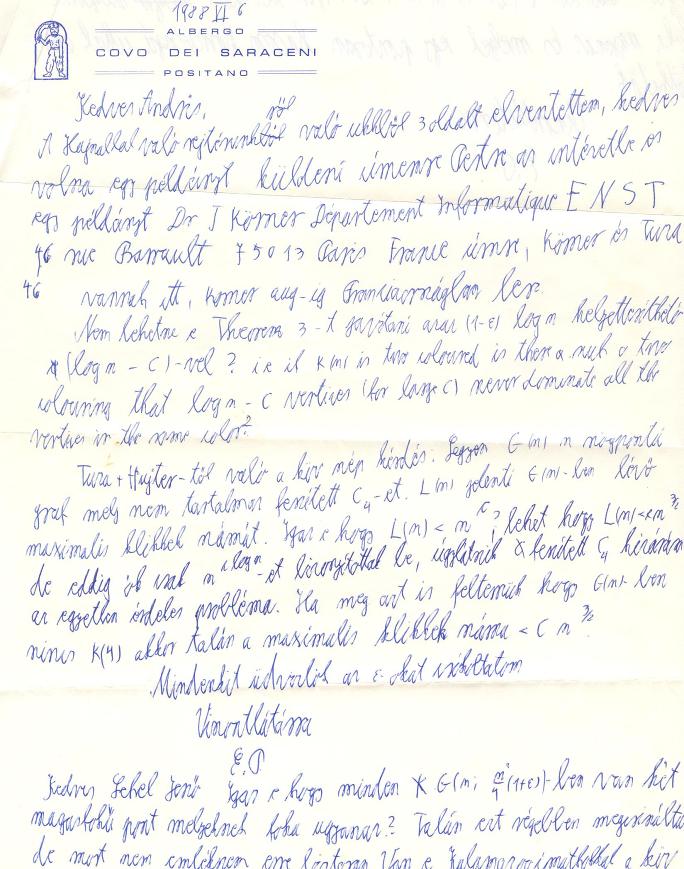 1988 VI 6
ALBERGO
COVO DEI SARACENI
POSITANO
Kedves András,
ről
A Hajnallal való rejtörinkből való cikkből 3 oldalt elventettem, kedves
volna egy példányt küldeni címemre Pestre az intézetbe és
egy példányt Dr J Körner Département Informatique ENST
46 rue Barrault 75013 Paris France címre, Körner és Tuza
46 vannak itt, Körner aug-ig Franciaországban lesz.
Nem lehetne e Theorem 3-t javítani azaz (1-ε) log n helyettesíthető
(log n - C)-vel? i.e. if K(n) is two coloured is there a such a two
colouring that log n - C vertices (for large C) never dominate all the
vertices in the same color?
Tuza + Hujter-től való a kis szép kérdés. Legyen G(n) n szögpontú
graf mely nem tartalmaz feszített C4-et. L(n) jelenti G(n)-ben lévő
maximalis klikkek számát. Igaz e hogy L(n) < n^c? lehet hogy L(n) < c n^3/2
de eddig ők csak n^c log n-et bizonyítottak be, úgylátszik a feszített C4 kizárása
az egyetlen érdekes probléma. Ha meg azt is feltesszük hogy G(n)-ben
nincs K(4) akkor talán a maximalis klikkek száma < C n^3/2.
Mindenkit üdvözlök az ε-okat csókoltatom
Viszontlátásra
E.P
Kedves Lehel Jenő Igaz e hogy minden G(n; n²/4(1+ε))-ben van két
magasfokú pont melyeknek foka ugyanaz? Talán ezt régebben megcsináltu
de most nem emlékszem erre biztosan Van e a kis